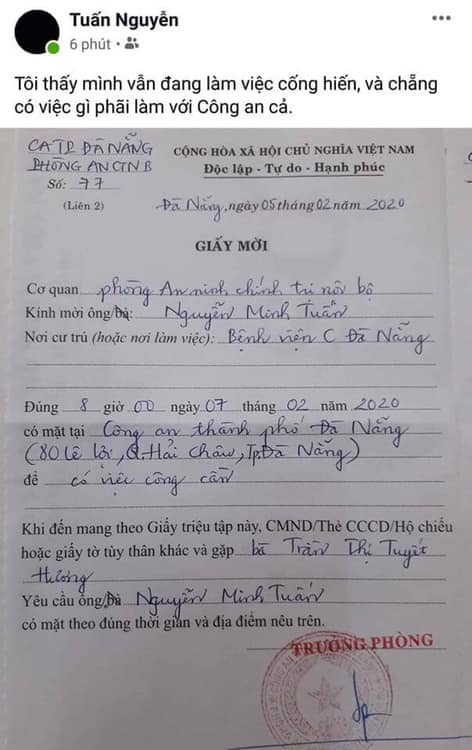 Tuấn Nguyễn
6 phút
Tôi thấy mình vẫn đang làm việc cống hiến, và chẵng
có việc gì phãi làm với Công an cả.
CA TP ĐÀ NẴNG
PHÒNG ANCTNB
Số: 77
(Liên 2)
CỘNG HÒA XÃ HỘI CHỦ NGHĨA VIỆT NAM
Độc lập - Tự do - Hạnh phúc
Đà Nẵng, ngày 05 tháng 02 năm 2020
GIẤY MỜI
Cơ quan phòng An ninh chính trị nội bộ
Kính mời ông/bà: Nguyễn Minh Tuấn
Nơi cư trú (hoặc nơi làm việc): Bệnh viện C Đà Nẵng
Đúng 8 giờ 00 ngày 07 tháng 02 năm 2020
có mặt tại Công an thành phố Đà Nẵng
(80 Lê Lợi, Q. Hải Châu, Tp. Đà Nẵng)
để có việc công cần
Khi đến mang theo Giấy triệu tập này, CMND/Thẻ CCCD/Hộ chiếu
hoặc giấy tờ tùy thân khác và gặp bà Trần Thị Tuyết
Hương
Yêu cầu ông/bà Nguyễn Minh Tuấn
có mặt theo đúng thời gian và địa điểm nêu trên.
TRƯỞNG PHÒNG